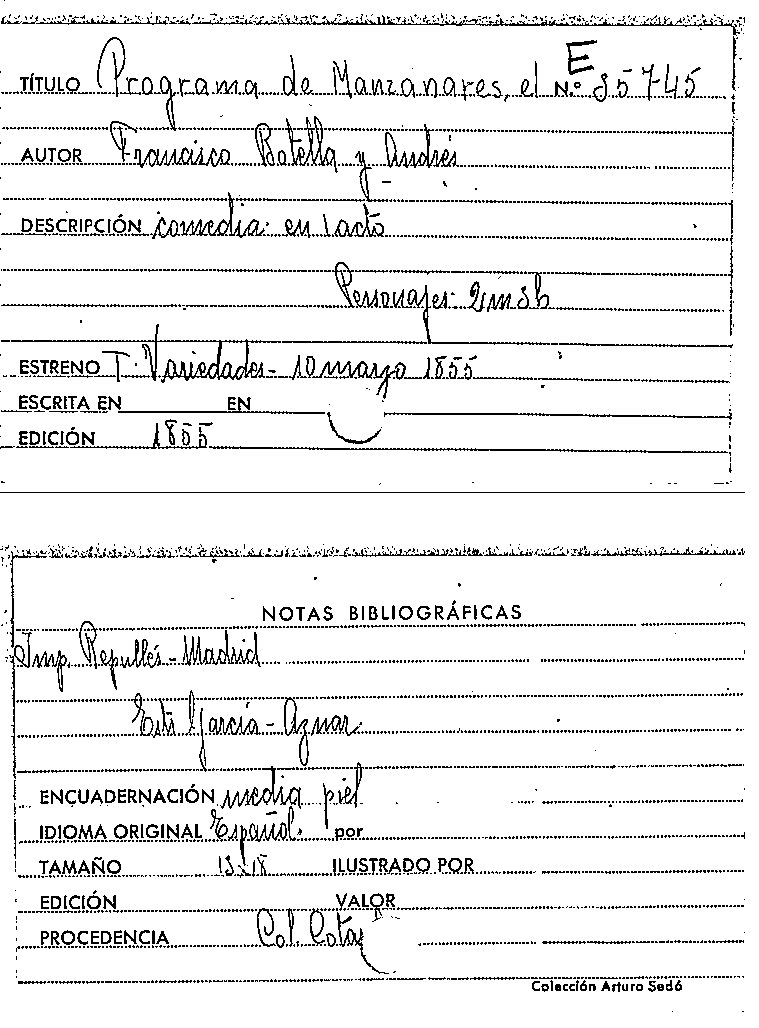 E
TÍTULO Programa de Manzanares, el N.º 35745
AUTOR Francisco Botella y Andrés
DESCRIPCIÓN comedia en 1 acto
Personajes: 2 m 3 h
ESTRENO T. Variedades - 10 marzo 1855
ESCRITA EN EN
EDICIÓN 1855
NOTAS BIBLIOGRÁFICAS
Imp. Repullés - Madrid
García - Aznar
ENCUADERNACIÓN media piel
IDIOMA ORIGINAL Español. por
TAMAÑO 13x18 ILUSTRADO POR
EDICIÓN VALOR
PROCEDENCIA Col. Cotar
Colección Arturo Sedó